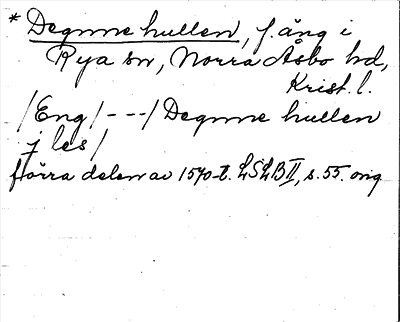 * Degnne hullen, f. äng i
Rya sn, Norra Åsbo hd,
Krist. l.
/Eng/---/Degnne hullen
j les/
förra delen av 1570-t. LSLB II, s. 55. orig